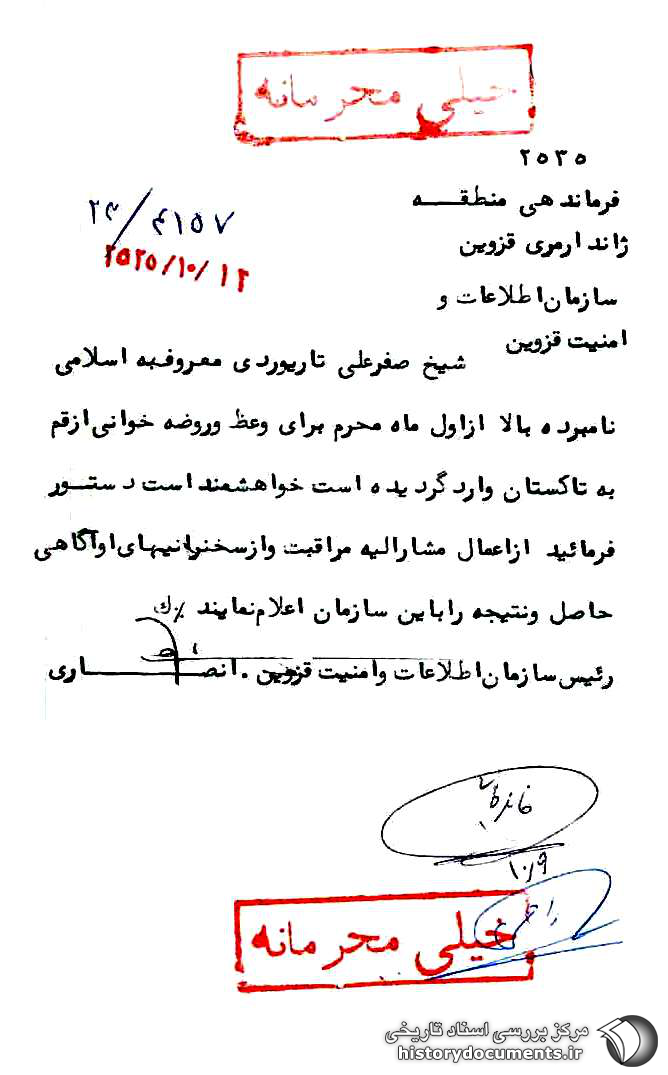 خیلی محرمانه
۲۵۳۵
فرماندهی منطقه
ژاندارمری قزوین
۲۳/۴۱۵۷
۲۵۳۵/۱۰/۱۲
سازمان اطلاعات و
امنیت قزوین
شیخ صفرعلی تاریوردی معروف به اسلامی
نامبرده بالا از اول ماه محرم برای وعظ و روضه خوانی از قم
به تاکستان وارد گردیده است خواهشمند است دستور
فرمائید از اعمال مشارالیه مراقبت و از سخنرانیهای او آگاهی
حاصل و نتیجه را باین سازمان اعلام نمایند
رئیس سازمان اطلاعات و امنیت قزوین . انصاری
۱۰/۹
خیلی محرمانه
مرکز بررسی اسناد تاریخی
historydocuments.ir